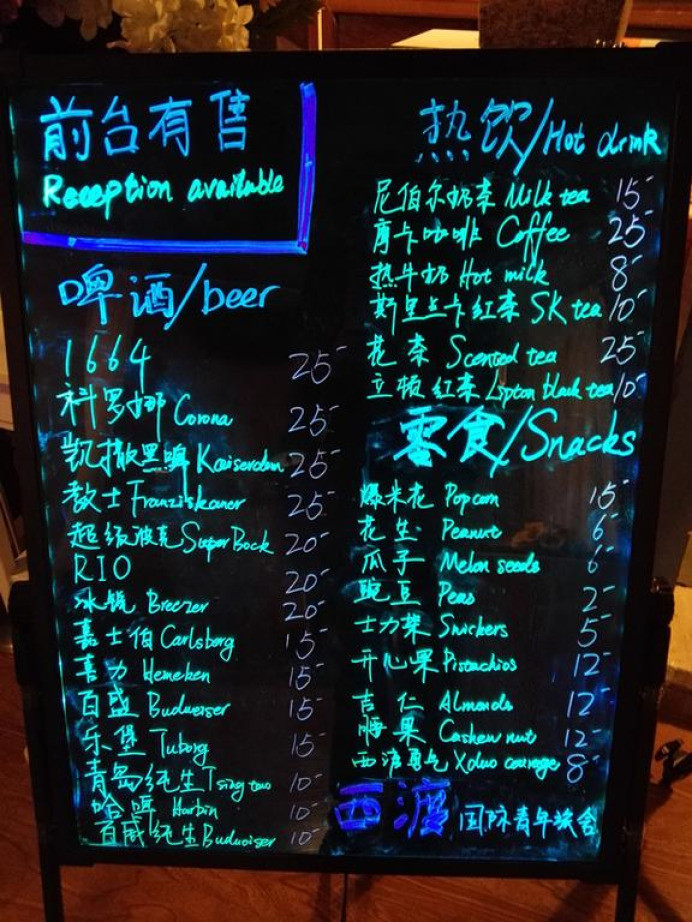 前台有售
Reception available
啤酒/beer
1664 25-
科罗娜 Corona 25-
凯撒黑啤 Kaiserdom 25-
教士 Franziskaner 25-
超级波克 Super Bock 20-
RIO 20-
冰锐 Breezer 20-
嘉士伯 Carlsberg 15-
喜力 Heineken 15-
百盛 Budweiser 15-
乐堡 Tuborg 15-
青岛纯生 Tsing tao 10-
哈啤 Harbin 10-
百威纯生 Budweiser 10-
热饮/Hot drink
尼伯尔奶茶 Milk tea 15-
摩卡咖啡 Coffee 25-
热牛奶 Hot milk 8-
斯里兰卡红茶 SK tea 10-
花茶 Scented tea 25-
立顿红茶 Lipton black tea 10-
零食/Snacks
爆米花 Popcorn 15-
花生 Peanut 6-
瓜子 Melon seeds 6-
豌豆 Peas 2-
士力架 Snickers 5-
开心果 Pistachios 12-
杏仁 Almonds 12-
腰果 Cashew nut 12-
西渡勇气 Xduo courage 8-
西渡 国际青年旅舍